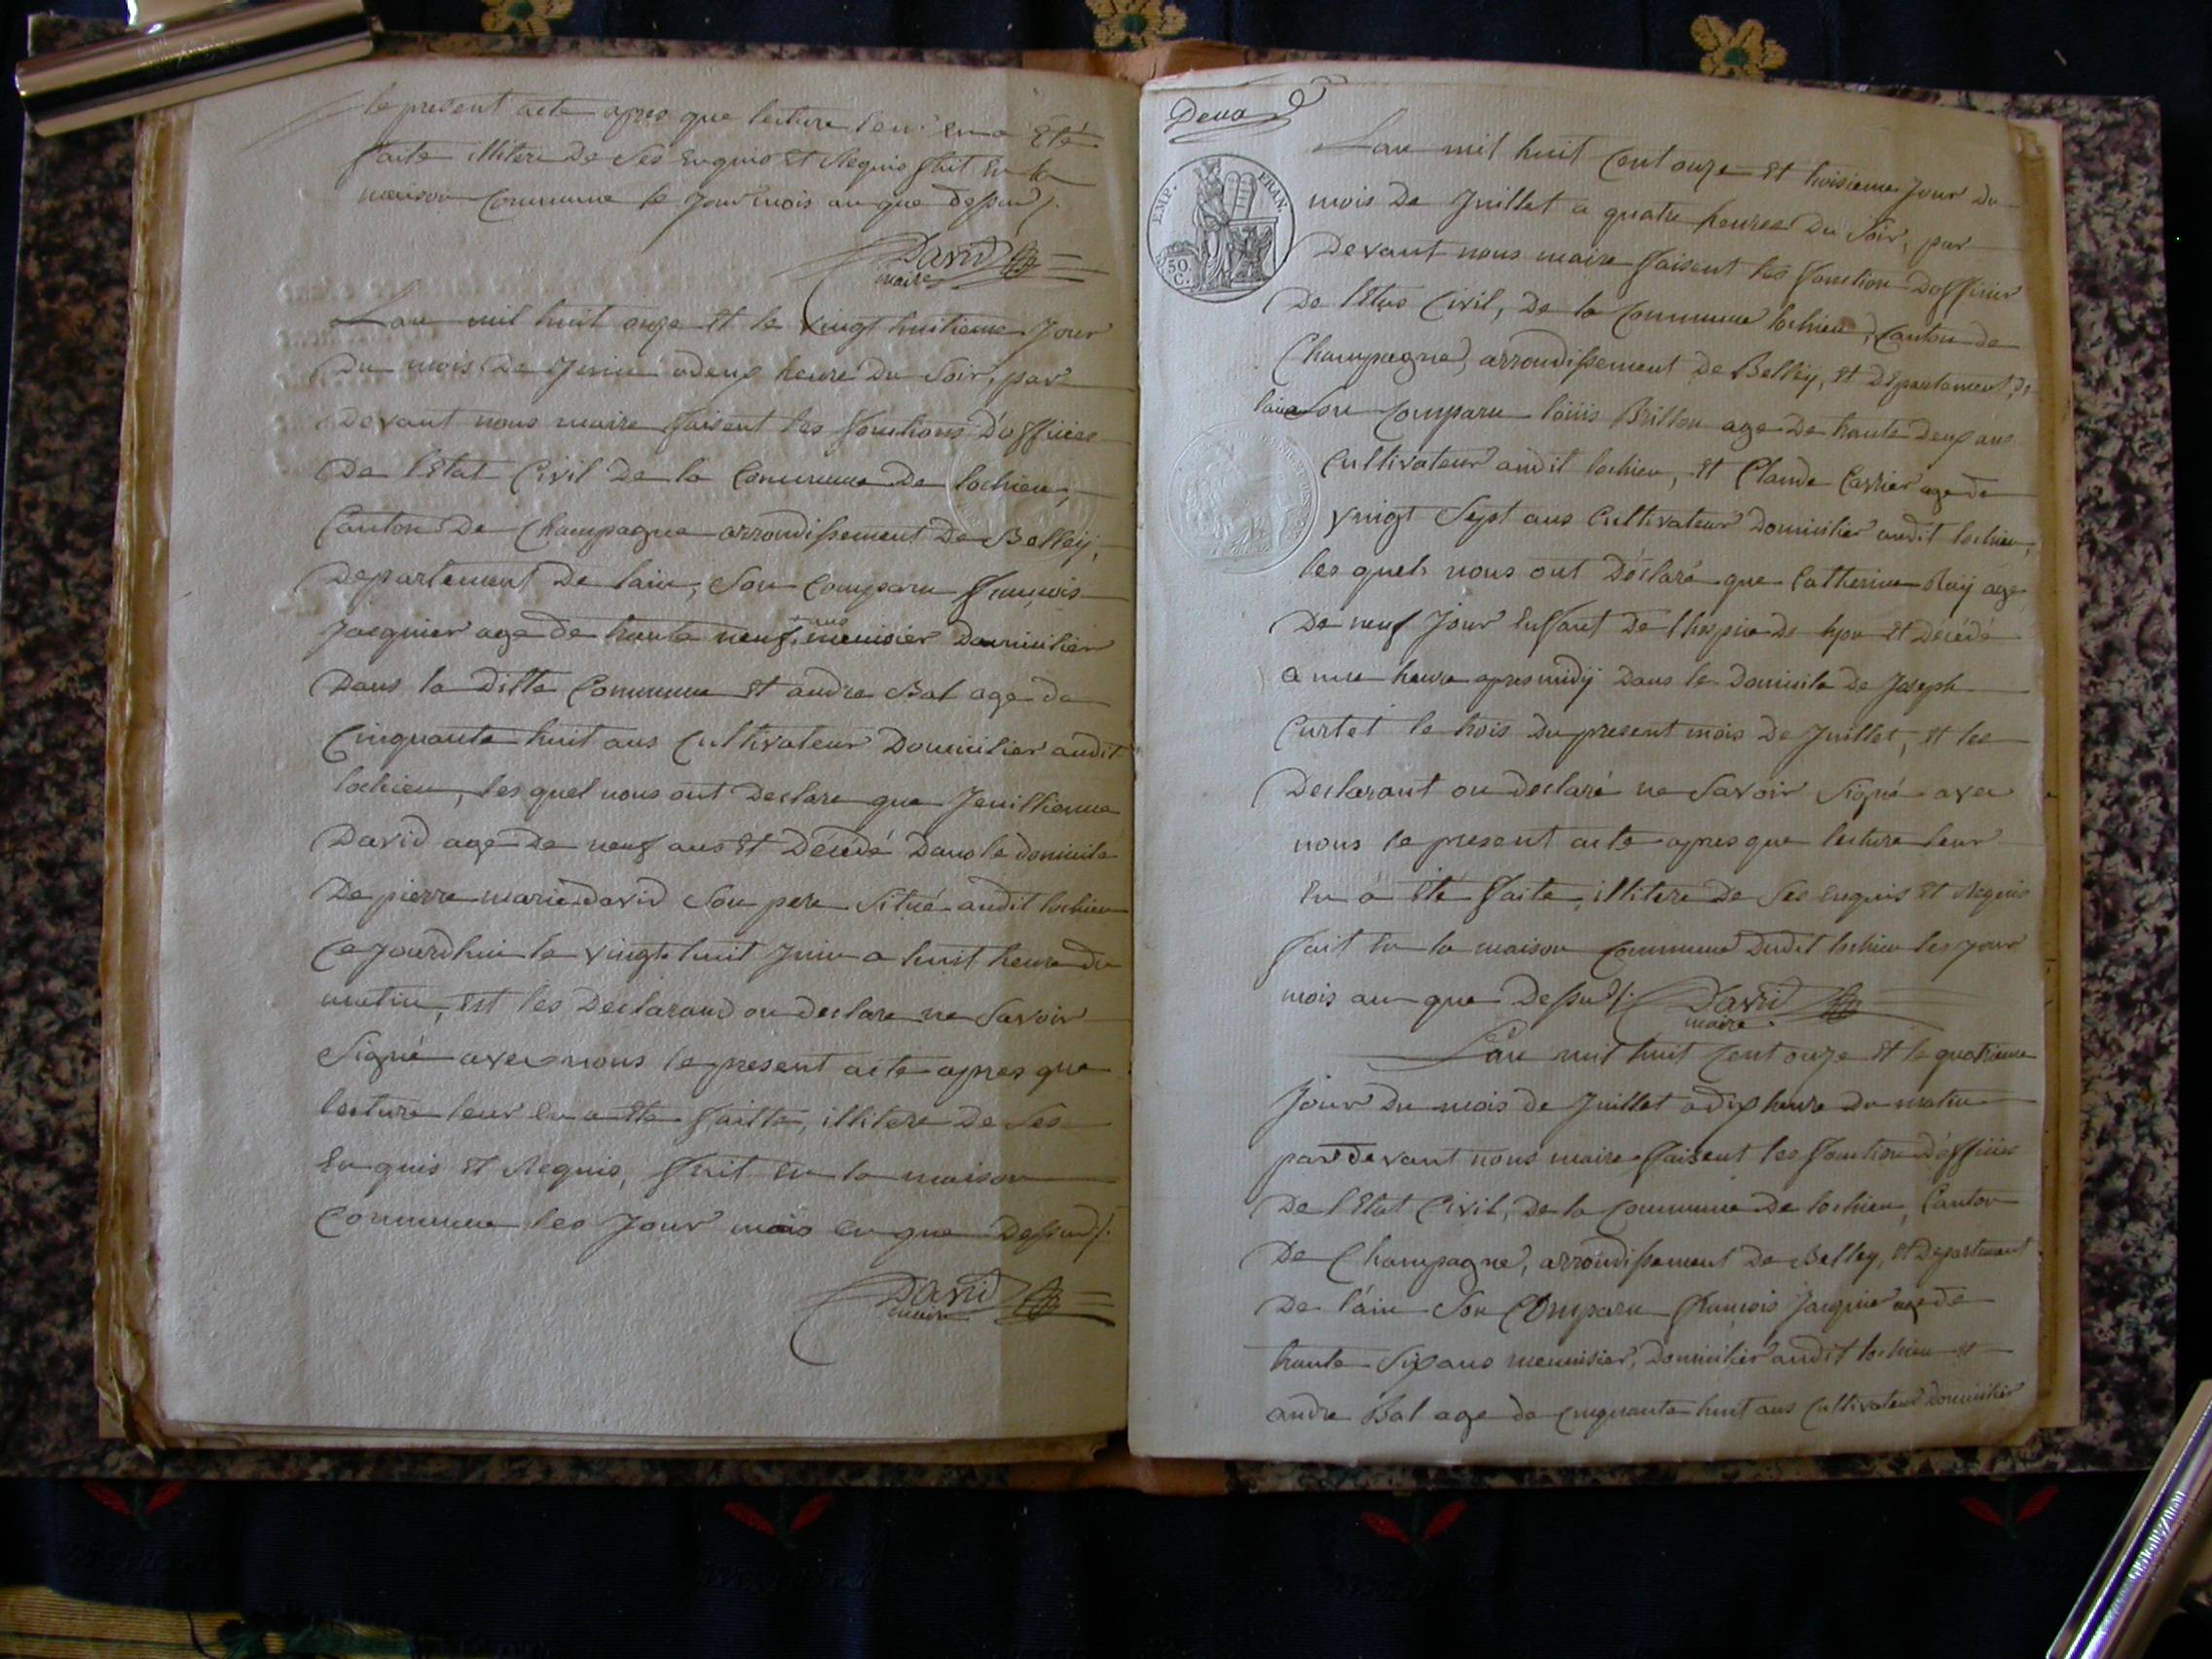 le present acte apres que lecture leur en a Eté
faite illitere de Ses Enquis Et Requis fait En la
maison Commune le Jour mois an que dessus /.
David
maire
Lan mil huit onze Et le vingt huitieme Jour
Du mois De Juin a deux heure Du Soir, par
Devant nous maire faisent les fonctions D'officier
De l'Etat Civil De la Commune De lochieu,
Canton De Champagne arrondissement De Belleÿ,
Departement De lain, Son Comparu François
Jacquier age de trante neuf ans menisier Domicilier
Dans la ditte Commune Et andre Bal age de
Cinquante huit ans Cultivateur Domicilier audit
lochieu, les quel nous ont Declare que Jenillienne
David age De neuf ans Et Décédé Dans le domicile
De pierre marie David Son pere Situé audit lochieu
Ce Jourdhui le vingt huit Juin a huit heure du
matin, Est les Declarand on declare ne Savoir
Signé avec nous le present acte apres que
lecture leur En a Ette faitte, illitere De Ses
En quis Et Requis, fait En la maison
Commune les Jour mois En que Dessus /.
David
maire
Deux
EMP. FRAN.
50 C.
Lan mil huit Cent onze Et troisieme Jour Du
mois De Juillet a quatre heures Du Soir, par
Devant nous maire faisent les fonction D'officier
De l'Etas Civil, De la Commune lochieu, Canton de
Champagne, arrondissement De Belleÿ, Et Departement De
laina Son Comparu loüis Brillon age De trante Deux ans
Cultivateur audit lochieu, Et Claude Carrier age de
vingt Sept ans Cultivateur Domicilier audit lochieu,
les quels nous ont Déclaré que Catherine Raÿ age
De neuf Jour Enfant De lhospice De lyon Et Décédé
a une heure apres midÿ Dans le Domicile De Joseph
Curtet le trois Du present mois De Juillet, Et les
Declarant on declaré ne Savoir Signé avec
nous le present acte apres que lecture leur
En a Eté faite, illitere De Ses Enquis Et Requis
fait En la maison Commune Dudit lochieu les Jour
mois an que Dessus /. David
maire
Lan mil huit Cent onze Et le quatrieme
Jour Du mois de Juillet a dix heure Du matin
par devant nous maire faisent les fonction D'officier
De l'Etat Civil, De la Commune De lochieu, Canton
De Champagne, arrondissement De Belley, Et Departement
De l'ain Son Comparu François Jacquier age de
trante Six ans menuisier, Domicilier audit lochieu Et
andre Bal age de Cinquante huit ans Cultivateur domicilier